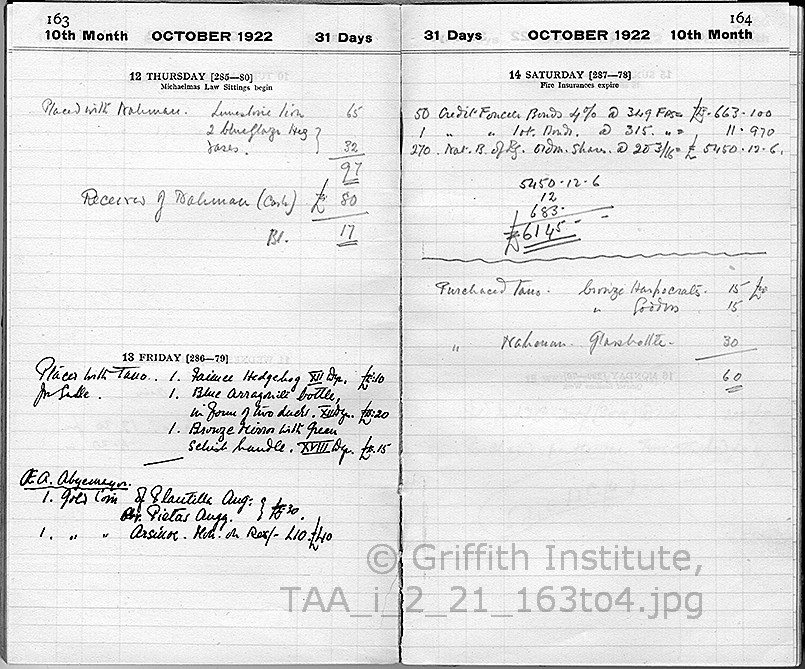 163
10th Month OCTOBER 1922 31 Days
12 THURSDAY [285—80]
Michaelmas Law Sittings begin
Placed with Nahman. Limestone lion 65
2 blue glaze Heg
Vases. } 32
97
Received of Nahman (Cash) £E 80
Bl. 17
13 FRIDAY [286—79]
Placed with Tano. 1. Faience Hedgehog XII Dyn. £E.10
for Sale. 1. Blue Arragonite bottle,
in form of two ducks. XII Dyn. £E.20
1. Bronze Mirror with Green
Schist handle. XVIII Dyn. £E.15
A. Abyemayor.
1. Gold Coin of Plautilla Aug:
Pietas Augg. } £E 30.
1. " " Arsinoe. £E 40
164
31 Days OCTOBER 1922 10th Month
14 SATURDAY [287—78]
Fire Insurances expire
50 Credit Foncier Bonds 4% @ 349 Frs = £E. 663.100
1 " " Bonds. @ 315. " = 11.970
270. Nat. B. of Eg. Ordin. Shares. @ 20 3/16 = £ 5450.12.6.
5450.12.6
12
683.
£E 6145 - -
Purchased Tano. bronze Harpocrates. 15 £E
" Goddess 15
" Nahman. Glass bottle. 30
60
© Griffith Institute,
TAA_i_2_21_163to4.jpg